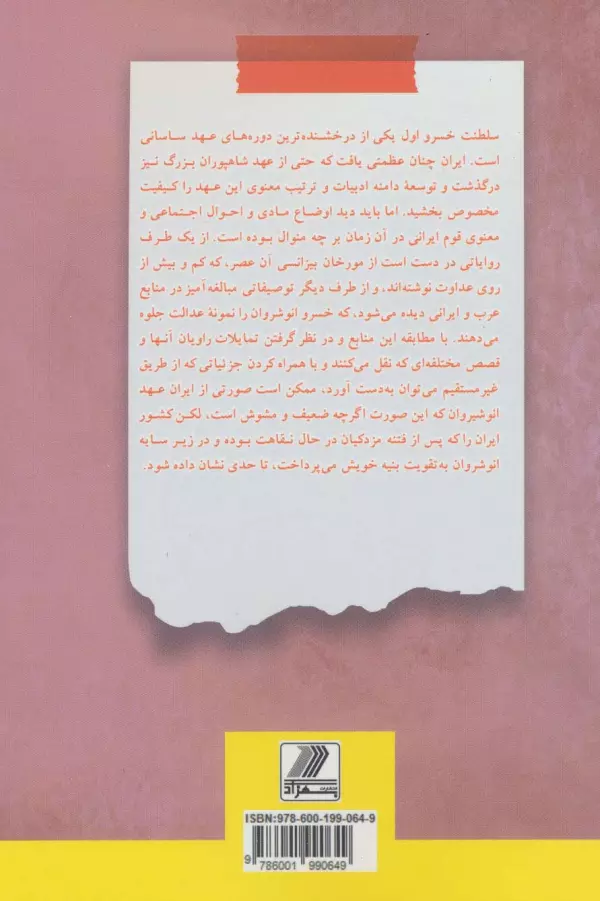 سلطنت خسرو اول یکی از درخشنده‌ترین دوره‌های عهد ساسانی
است. ایران چنان عظمتی یافت که حتی از عهد شاهپوران بزرگ نیز
درگذشت و توسعهٔ دامنه ادبیات و ترتیب معنوی این عهد را کیفیت
مخصوص بخشید. اما باید دید اوضاع مادی و احوال اجتماعی و
معنوی قوم ایرانی در آن زمان بر چه منوال بوده است. از یک طرف
روایاتی در دست است از مورخان بیزانسی آن عصر، که کم و بیش از
روی عداوت نوشته‌اند، و از طرف دیگر توصیفاتی مبالغه‌آمیز در منابع
عرب و ایرانی دیده می‌شود، که خسرو انوشروان را نمونهٔ عدالت جلوه
می‌دهند. با مطابقه این منابع و در نظر گرفتن تمایلات راویان آنها و
قصص مختلفه‌ای که نقل می‌کنند و با همراه کردن جزئیاتی که از طریق
غیرمستقیم می‌توان به‌دست آورد، ممکن است صورتی از ایران عهد
انوشیروان که این صورت اگرچه ضعیف و مشوش است، لکن کشور
ایران را که پس از فتنه مزدکیان در حال نقاهت بوده و در زیر سایه
انوشروان به‌تقویت بنیه خویش می‌پرداخت، تا حدی نشان داده شود.
انتشارات
بهزاد
ISBN:978-600-199-064-9
9 786001 990649